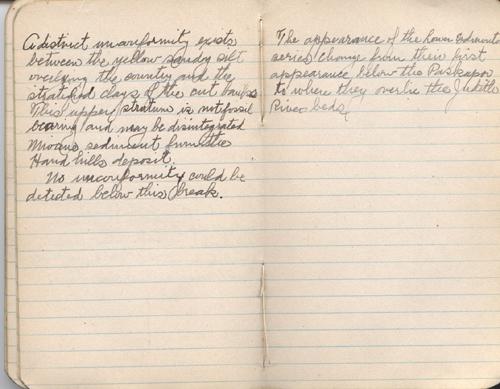 A distinct unconformity exists
between the yellow sandy silt
overlying the country and the
stratified clays of the cut banks
This upper stratum is not fossil
bearing and may be disintegrated
Miocene sediment from the
Hand hills deposit.
No unconformity could be
detected below this break.
The appearance of the Lower Edmonton
series change from their first
appearance below the
to where they overlie the Judith
River beds.